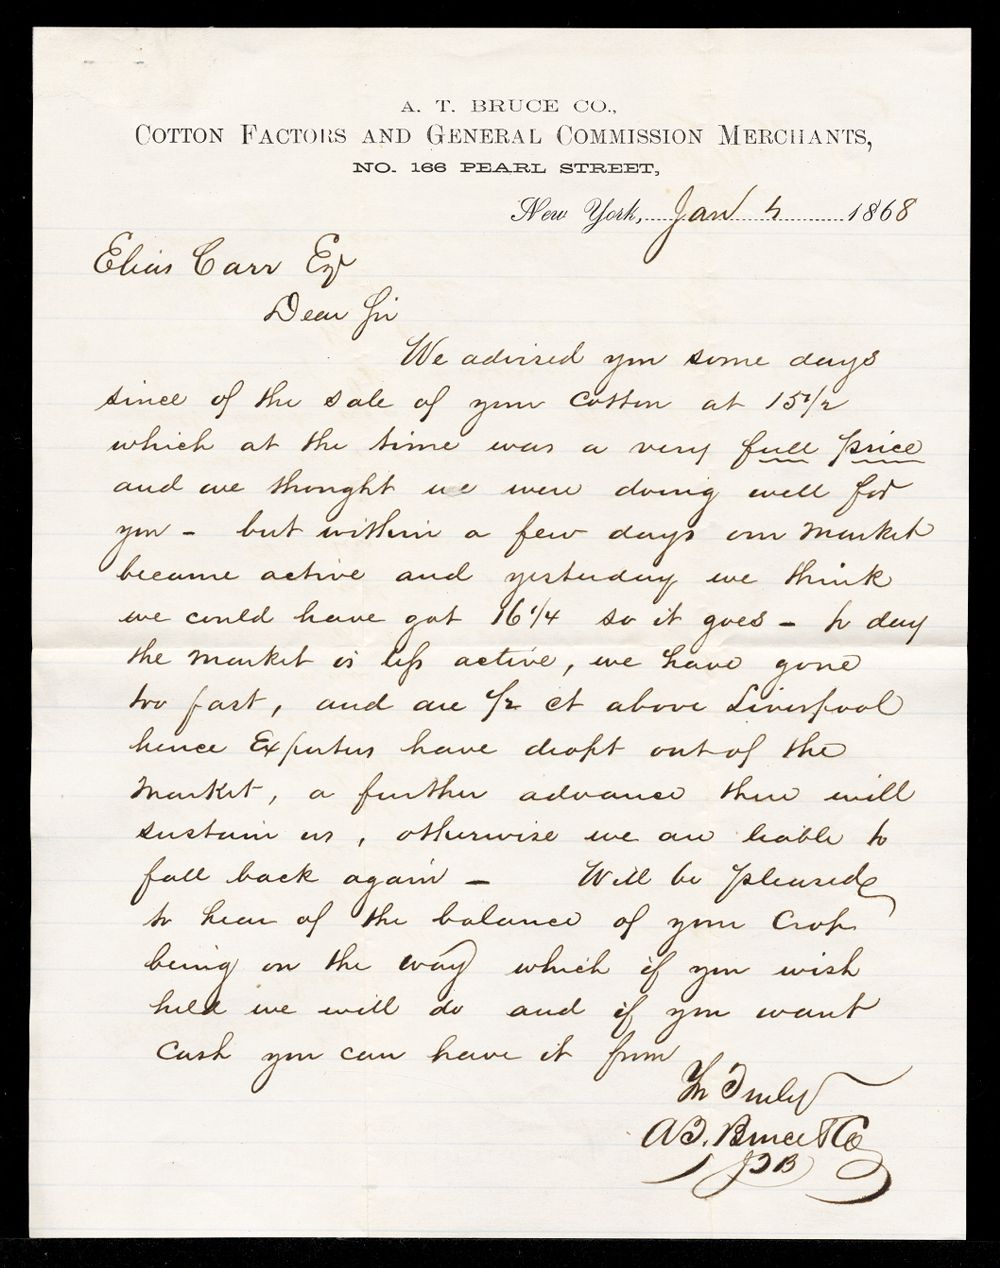 A. T. BRUCE CO.,
COTTON FACTORS AND GENERAL COMMISSION MERCHANTS,
NO. 166 PEARL STREET,
New York, Jan 4 1868
Elias Carr Esqr
Dear Sir
We advised you some days
since of the sale of your Cotton at 15 1/2
which at the time was a very full price
and we thought we were doing well for
you - but within a few days our Market
became active and yesterday we think
we could have got 16 1/4 so it goes - to day
the Market is less active, we have gone
too fast, and are 1/2 ct above Liverpool
hence Exporters have dropt out of the
Market, a further advance there will
sustain us, otherwise we are liable to
fall back again - Will be pleased
to hear of the balance of your Crop
being on the way which if you wish
held we will do and if you want
Cash you can have it from
Yrs Truly
A.T. Bruce & Co
JTB